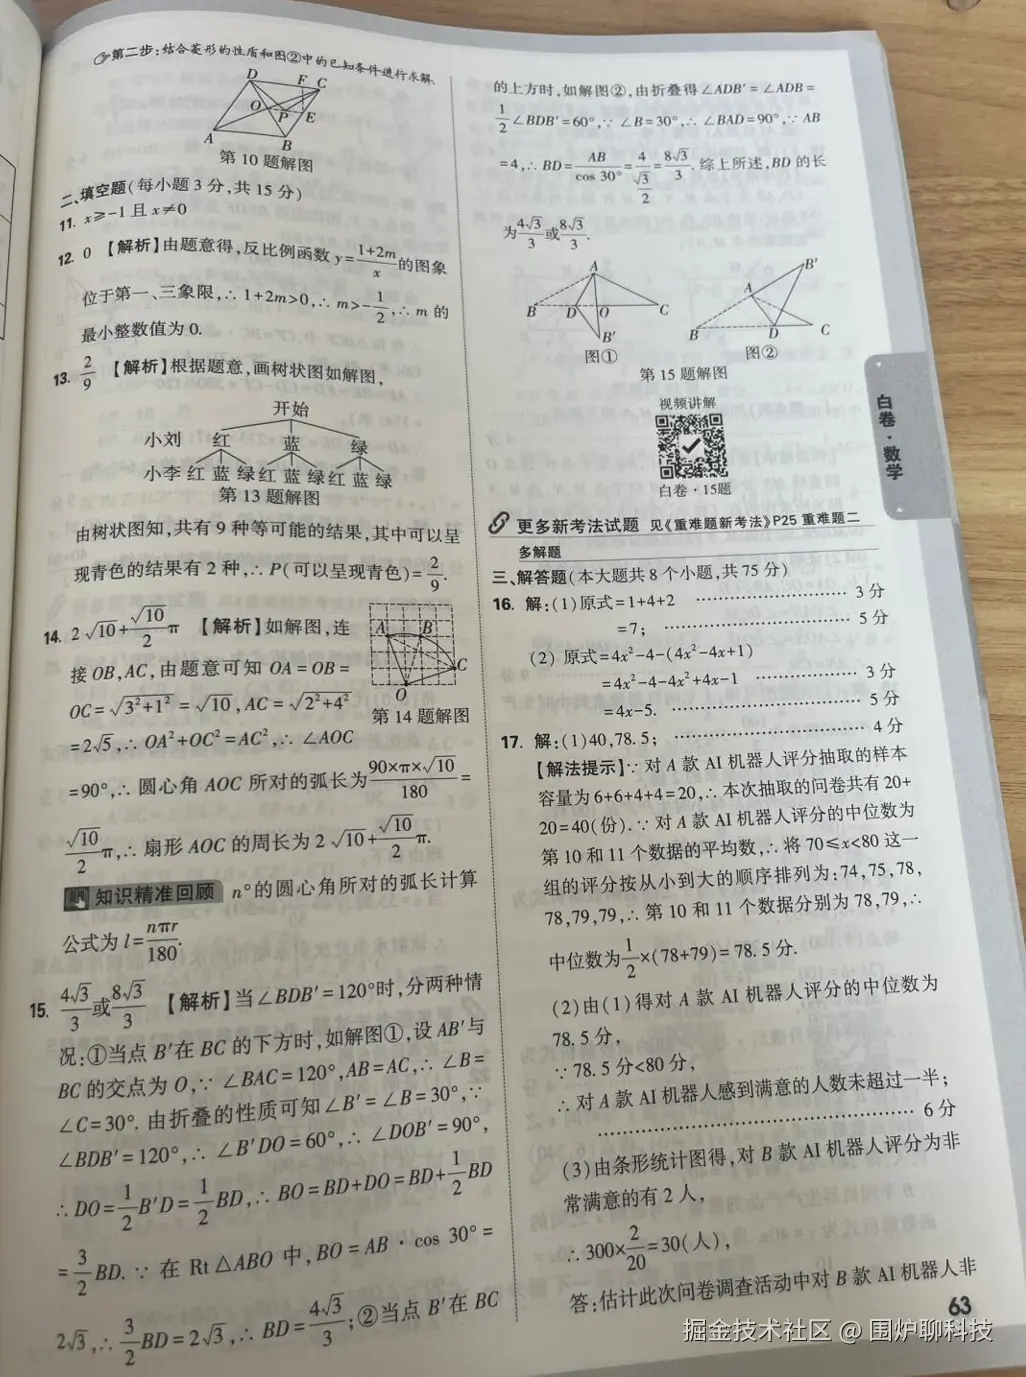 第二步:结合菱形的性质和图②中的已知条件进行求解.
D F C
O P E
A B
第 10 题解图
二、填空题(每小题 3 分,共 15 分)
11. x≥-1 且 x≠0
12. 0 【解析】由题意得,反比例函数 y=\frac{1+2m}{x}的图象
位于第一、三象限,∴ 1+2m>0,∴ m>-\frac{1}{2},∴ m 的
最小整数值为 0.
13. \frac{2}{9} 【解析】根据题意,画树状图如解图,
开始
小刘 红 蓝 绿
小李 红 蓝 绿 红 蓝 绿 红 蓝 绿
第 13 题解图
由树状图知,共有 9 种等可能的结果,其中可以呈
现青色的结果有 2 种,∴ P(可以呈现青色)=\frac{2}{9}.
14. 2\sqrt{10}+\frac{\sqrt{10}}{2}π 【解析】如解图,连
接 OB,AC,由题意可知 OA=OB=
OC=\sqrt{3²+1²}=\sqrt{10},AC=\sqrt{2²+4²}
=2\sqrt{5},∴ OA²+OC²=AC²,∴ ∠AOC
A B
C
O
第 14 题解图
=90°,∴ 圆心角 AOC 所对的弧长为\frac{90×π×\sqrt{10}}{180}=
\frac{\sqrt{10}}{2}π,∴ 扇形 AOC 的周长为 2\sqrt{10}+\frac{\sqrt{10}}{2}π.
知识精准回顾 n°的圆心角所对的弧长计算
公式为 l=\frac{nπr}{180}.
15. \frac{4\sqrt{3}}{3}或\frac{8\sqrt{3}}{3} 【解析】当∠BDB′=120°时,分两种情
况:①当点 B′在 BC 的下方时,如解图①,设 AB′与
BC 的交点为 O,∵ ∠BAC=120°,AB=AC,∴ ∠B=
∠C=30°. 由折叠的性质可知∠B′=∠B=30°,∵
∠BDB′=120°,∴ ∠B′DO=60°,∴ ∠DOB′=90°,
∴ DO=\frac{1}{2}B′D=\frac{1}{2}BD,∴ BO=BD+DO=BD+\frac{1}{2}BD
=\frac{3}{2}BD. ∵ 在 Rt△ABO 中,BO=AB·cos 30°=
2\sqrt{3},∴ \frac{3}{2}BD=2\sqrt{3},∴ BD=\frac{4\sqrt{3}}{3};②当点 B′在 BC
的上方时,如解图②,由折叠得∠ADB′=∠ADB=
\frac{1}{2}∠BDB′=60°,∵ ∠B=30°,∴ ∠BAD=90°,∵ AB
=4,∴ BD=\frac{AB}{cos 30°}=\frac{4}{\frac{\sqrt{3}}{2}}=\frac{8\sqrt{3}}{3}. 综上所述,BD 的长
为\frac{4\sqrt{3}}{3}或\frac{8\sqrt{3}}{3}.
A
B D O C
B′
图①
B′
A
B D C
图②
第 15 题解图
视频讲解
白卷·15题
更多新考法试题 见《重难题新考法》P25 重难题二
多解题
三、解答题(本大题共 8 个小题,共 75 分)
16. 解:(1)原式=1+4+2 ………… 3 分
=7; ………… 5 分
(2) 原式=4x²-4-(4x²-4x+1)
=4x²-4-4x²+4x-1 ………… 3 分
=4x-5. ………… 5 分
17. 解:(1)40,78.5; ………… 4 分
【解法提示】∵ 对 A 款 AI 机器人评分抽取的样本
容量为 6+6+4+4=20,∴ 本次抽取的问卷共有 20+
20=40(份). ∵ 对 A 款 AI 机器人评分的中位数为
第 10 和 11 个数据的平均数,∴ 将 70≤x<80 这一
组的评分按从小到大的顺序排列为:74,75,78,
78,79,79,∴ 第 10 和 11 个数据分别为 78,79,∴
中位数为\frac{1}{2}×(78+79)=78.5 分.
(2)由(1)得对 A 款 AI 机器人评分的中位数为
78.5 分,
∵ 78.5 分<80 分,
∴ 对 A 款 AI 机器人感到满意的人数未超过一半;
………… 6 分
(3)由条形统计图得,对 B 款 AI 机器人评分为非
常满意的有 2 人,
∴ 300×\frac{2}{20}=30(人),
答:估计此次问卷调查活动中对 B 款 AI 机器人非
白卷·数学
63
掘金技术社区 @ 围炉聊科技